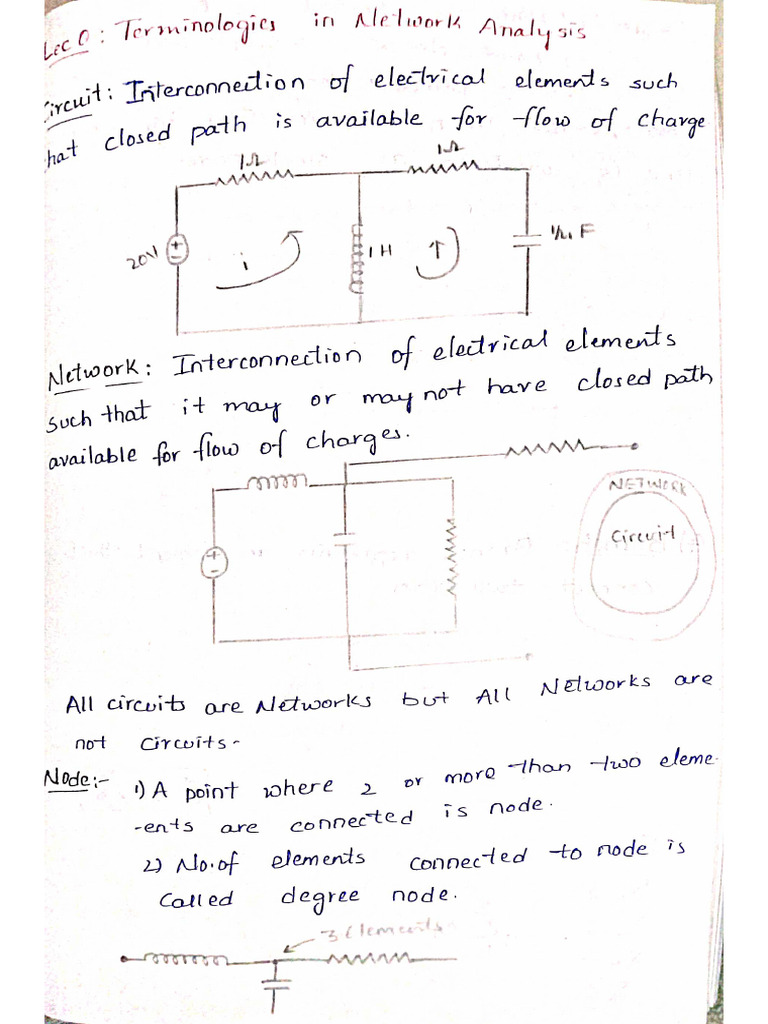 Lec 0 : Terminologies in Network Analysis
ircuit : Interconnection of electrical elements such
hat closed path is available for flow of charge
1Ω 1Ω
20V + - i 1H F
Network : Interconnection of electrical elements
such that it may or may not have closed path
available for flow of charges.
NETWORK
Circuit
+ -
All circuits are Networks but All Networks are
not circuits-
Node:- 1) A point where 2 or more than two eleme-
-ents are connected is node.
2) No. of elements connected to node is
called degree node.
3 Elements